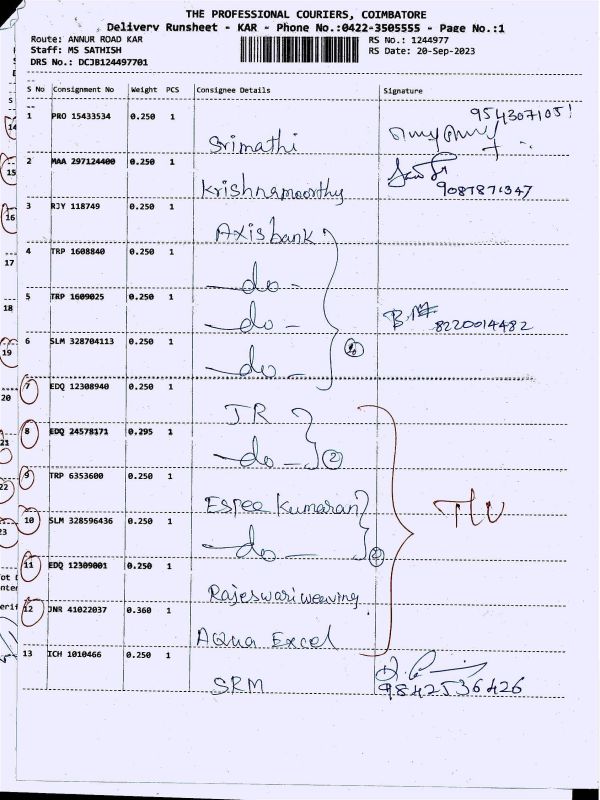 THE PROFESSIONAL COURIERS, COIMBATORE
Delivery Runsheet - KAR - Phone No.:0422-3505555 - Page No.:1
Route: ANNUR ROAD KAR RS No.: 1244977
Staff: MS SATHISH RS Date: 20-Sep-2023
DRS No.: DCJB124497701
S No Consignment No Weight PCS Consignee Details Signature
1 PRO 15433534 0.250 1 Srimathi 9543071051
2 MAA 297124400 0.250 1 Krishnamoorthy 9087871347
3 RJY 118749 0.250 1 Axis bank
4 TRP 1608840 0.250 1 -do-
5 TRP 1609025 0.250 1 -do- 8220014482
6 SLM 328704113 0.250 1 -do-
7 EDQ 12308940 0.250 1 JR
8 EDQ 24578171 0.295 1 -do- 2
9 TRP 6353600 0.250 1 Espee Kumaran
10 SLM 328596436 0.250 1 -do- 2
11 EDQ 12309001 0.250 1 Rajeswari weaving
12 JNR 41022037 0.360 1 Aqua Excel
13 ICH 1010466 0.250 1 SRM 9842536426
14
15
16
17
18
19
20
21
22
23